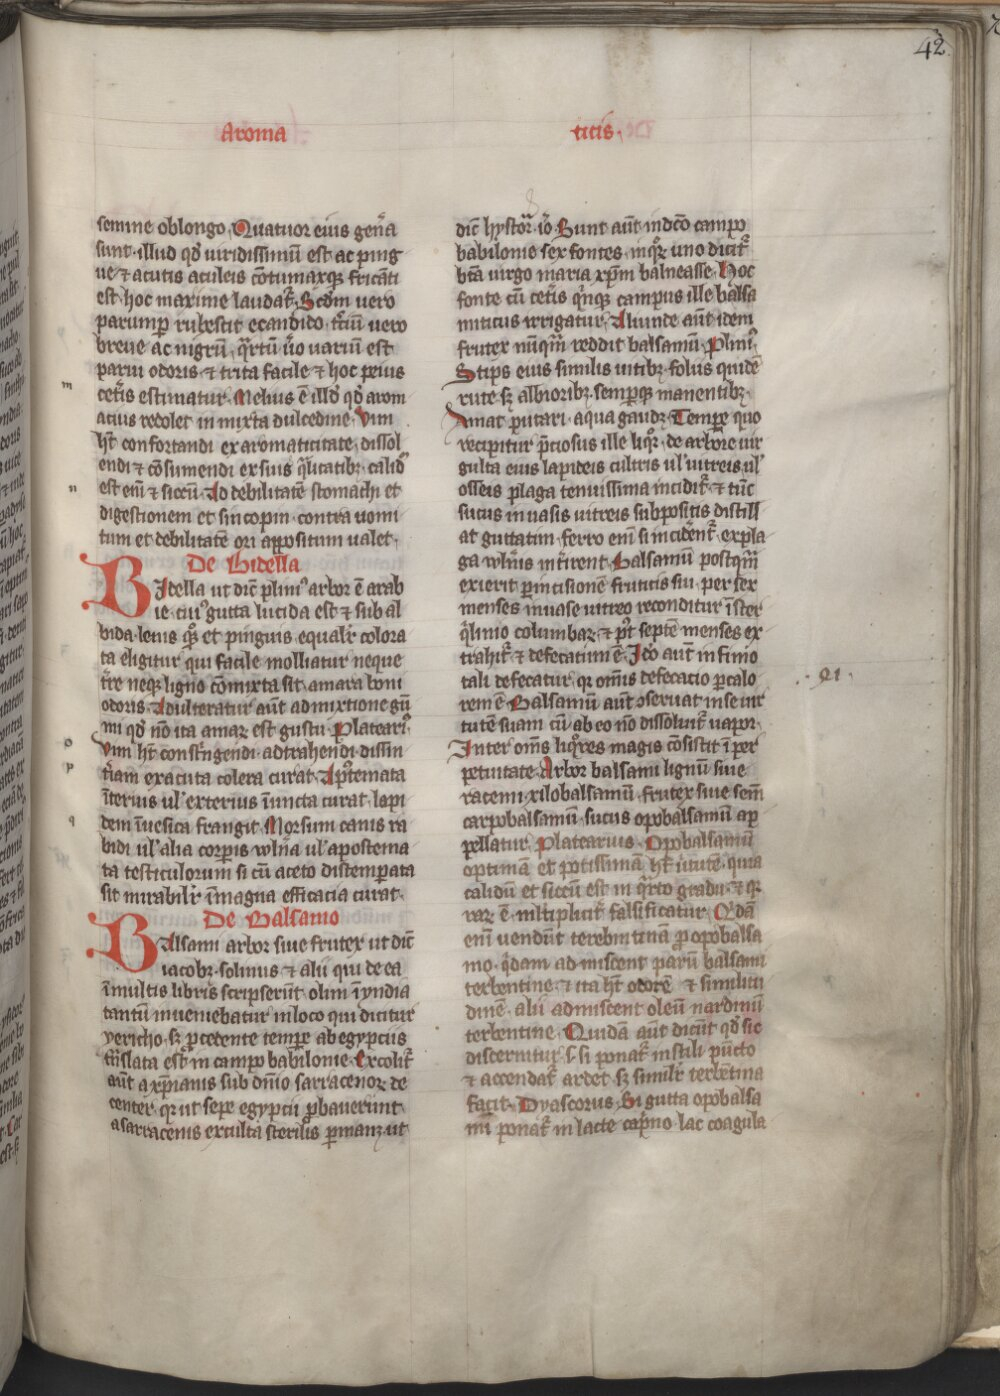 42
Aroma
ticis.
semine oblongo. Quatuor eius gen̄a
sunt. illud qđ uiridissimū est ac ping
ue ⁊ acutis aculeis cōtumaxqꝫ fricāti
est. hoc maxime laudat᷑. Scđm uero
parumꝑ rubescit ecandido. t̄ciū uero
breue ac nigrū. q̄rtū ūo uariū est
parui odoris. ⁊ trita facile ⁊ hoc peius
m
cet̄is estimatur. Melius ē illđ qđ arom
atius redolet in mixta dulcedine. Vim
ht̄ confortandi ex aromaticitate. dissol
endi ⁊ cōsumendi ex suis q̄litatibꝫ. calidꝰ
n
est em̄ ⁊ siccū. Ad debilitatē stomachi et
digestionem et sincopin. contra uomi
tum et debilitatē ori appositum ualet.
De Bidella
BIdella ut dic̄ pliniꝰ arbor ē arab
ie. cuiꝰ gutta lucida est ⁊ sub al
bida. leuis qꝫ et pinguis equalr̄ colora
ta eligitur qui facile molliatur neque
t̄re neqꝫ ligno cōmixta sit. amara boni
odoris. Adulteratur aūt admixtione gū
mi qđ nō ita amaꝝ est gustu. Plateariꝰ.
o
Vim ht̄ constⁱngendi. adtrahendi. dissin
p
t̄iam ex acuta colera curat. Ap̄temata
īterius ul' exterius īuncta curat. lapi
q
dem īuesica frangit. Morsum canis ra
bidi ul' alia corꝑis wln̄a ul' apostema
ta testiculorum si cū aceto distemꝑata
sit mirabilr̄ īmagna efficacia curat.
De Balsamo
BAlsami arbor siue frutex ut dic̄t
iacobꝫ. solinus ⁊ alii qui de ea
īmultis libris scripserūt. olim īyndia
tantū inueniebatur inloco qui dicitur
yericho. sꝫ p̄cedente temꝑe ab egypciis
tn̄slata est in campo babilonie. Excolit᷑
aūt axp̄ianis sub dn̄io sarracenoꝝ de
center. qꝛ ut sepe egypcii ꝓbauerunt
asarracenis exculta sterilis ꝑmanꝫ. ut
dic̄ hystoꝛ̄. iō Sunt aūt indc̄o campo
babilonie sex fontes. inqꝫ uno dicit᷑
bt̄a uirgo maria xp̄m balneasse. Hoc
fonte cū cet̄is qⁱnqꝫ campus ille balsa
miticus irrigatur. Aliunde aūt idem
frutex nūqͣm reddit balsamū. Pliniꝰ.
Stips eius similis uitibꝫ. foliis quidē
rute sꝫ albioribꝫ. semperqꝫ manentibꝫ.
Amat ꝑputari. aqua gaudꝫ. Tempe quo
recipitur p̄ciosus ille liqꝛ̄. de arbore uir
gulta eius lapideis cultris ul' uitreis ul'
osseis plaga tenuissima incidit᷑. ⁊ tūc
sucus inuasis uitreis subpositis distill
at guttatim. ferro em̄ si incident᷑. expla
ga wln̄is int̄irent. Balsamū postqͣm
exierit ꝑ incisionē fruticis sui. per sex
menses inuase uitreo reconditur īster
qͥlinio columbaꝝ. ⁊ pꝰt septē menses ex
trahit᷑ ⁊ defecatum ē. Iđo aūt infimo
tali defecatur. qꝛ om̄is defecacio ꝑ calo
21.
rem ē. Balsamū aūt ɔseruat inse uir
tutē suam. cū ab eo nō dissoluit᷑ uapor.
Inter om̄s liq̄res magis cōsistit ī per
petuitate. Arbor balsami lignū siue
racemi xilobalsamū. frutex siue sem̄
carpobalsamū. sucus opobalsamū ap
pellatur. Platearius. Opobalsamū
optimā et potissimā ht̄ ūtutē. quia
calidū et siccū est in qⁱrto gradu. ⁊ qꝛ
raꝝ ē. mltiplicit᷑ falsificatur. Qͥdā
enī uendūt terebintinā ꝓ opobalsa
mo. qͥdam admiscent parū balsami
terbentine. ⁊ ita ht̄ odorē ⁊ similitu
dinē. alii admiscent oleū nardinū
terbentine. Quidā aūt dicūt qđ sic
discernitur. s. si ponat᷑ instili pūcto
⁊ accendat᷑ ardet. sꝫ similr̄ terbētina
facit. Dyascorus. Si gutta opobalsa
mi ponat᷑ in lacte cap̄no. lac coagula